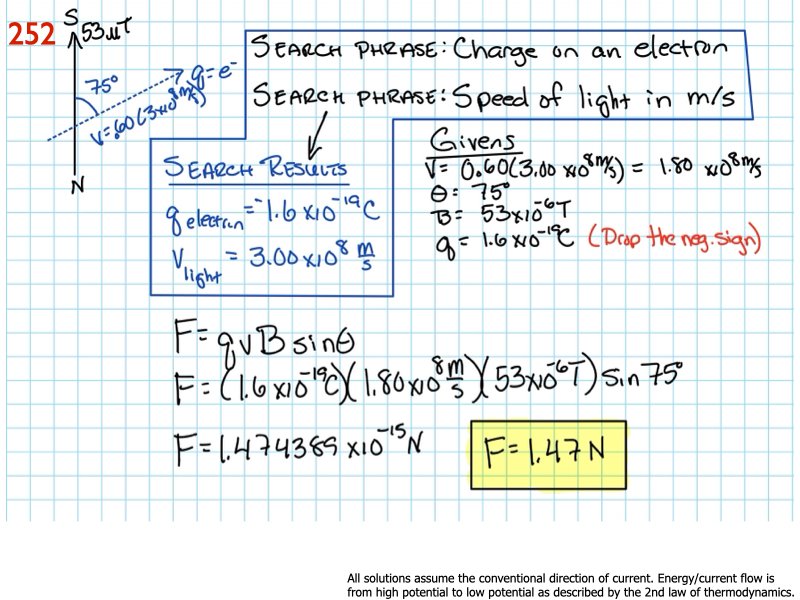 252
S
53 μT
75°
q=e⁻
V=.60(3×10⁸ m/s)
N
SEARCH PHRASE: Charge on an electron
SEARCH PHRASE: Speed of light in m/s
SEARCH RESULTS
q electron = ⁻1.6×10⁻¹⁹C
V light = 3.00×10⁸ m/s
Givens
V= 0.60(3.00 ×10⁸ m/s) = 1.80 ×10⁸ m/s
θ= 75°
B= 53×10⁻⁶T
q= 1.6×10⁻¹⁹C (Drop the neg. sign)
F= qvB sinθ
F= (1.6×10⁻¹⁹C)(1.80×10⁸ m/s)(53×10⁻⁶T) sin 75°
F=1.474389 ×10⁻¹⁵N
F=1.47N
All solutions assume the conventional direction of current. Energy/current flow is
from high potential to low potential as described by the 2nd law of thermodynamics.